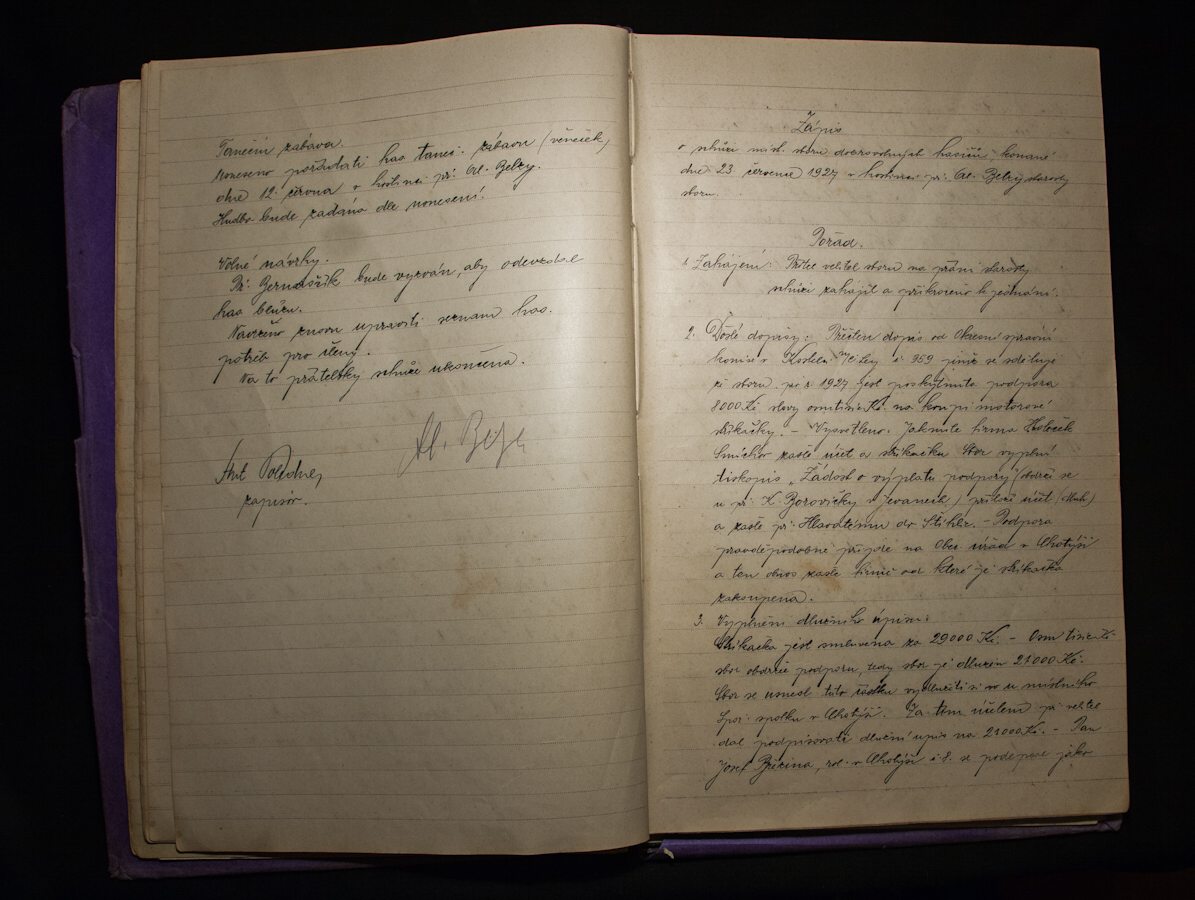 Taneční zábava.
Usneseno pořádati has. taneč. zábavu (věneček)
dne 12. června v hostinci př. Al. Belzy.
Hudba bude zadána dle usnesení.
Volné návrhy.
Př. Bernášék bude vyzván, aby odevzdal
has. blůzu.
Navrženo znovu upraviti seznam has.
potřeb pro členy.
Na to přátelsky schůze ukončena.
Ant. Poledne,
zapisov.
Al. Belza
Zápis
o schůzi míst. sboru dobrovolných hasičů konané
dne 23. července 1927 v hostinci př. Al. Belzy starosty
sboru.
Pořad.
1. Zahájení: Přítel velitel sboru na přání starosty
schůzi zahájil a přikročeno k jednání.
2. Došlé dopisy: Přečten dopis od Okresní správní
komise v Kostelci n/Č. l. č. 959 jímž se sděluje
že sboru pro r. 1927 jest poskytnuta podpora
8000 Kč slovy osmtisíc Kč. na koupi motorové
stříkačky. – Vysvětleno. Jakmile firma Holeček
Smíchov zašle účet a stříkačku sbor vyplní
tiskopis „Žádost o výplatu podpory" (obdrží se
u př. K. Borovičky v Jevanech) přiloží účet
a zašle př. Hlavatému do Štíhlic. – Podpora
pravděpodobně přijde na Obec. úřad v Chotýši
a ten obnos zašle firmě od které je stříkačka
zakoupena.
3. Vyplnění dlužního úpisu:
Stříkačka jest smluvena za 29000 Kč. – Osm tisíc Kč
sbor obdrží podporu, tedy sbor je dlužen 21000 Kč.
Sbor se usnesl tuto částku vydlužiti si u místního
Spoř. spolku v Chotýši. Za tím účelem př. velitel
dal podpisovati dlužní úpis na 21000 Kč. – Pan
Josef Březina, rol. v Chotýši č. 8. se podepsal jako